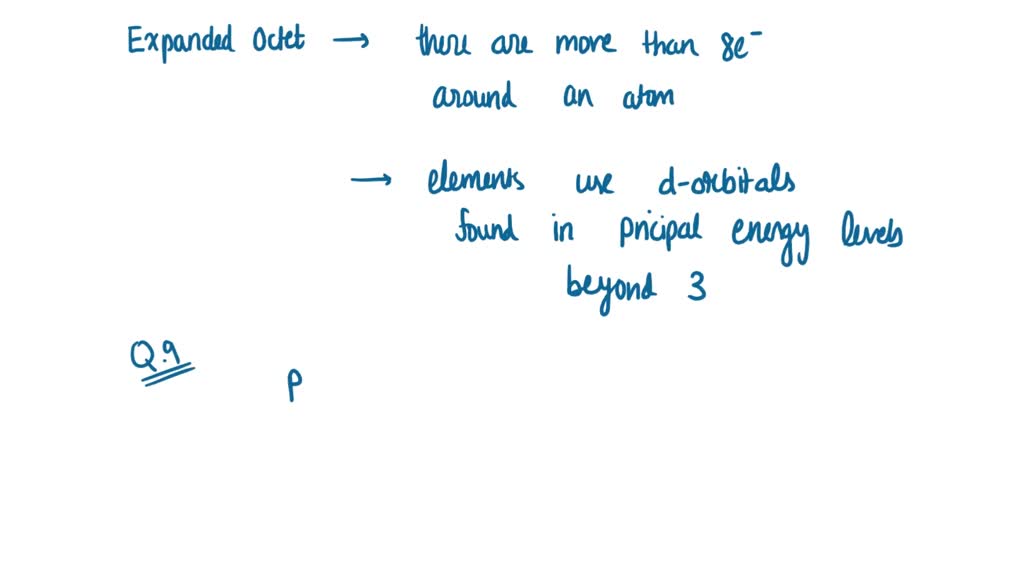 Expanded Octet → there are more than 8e⁻
around an atom
→ elements use d-orbitals
found in pricipal energy levels
beyond 3
Q.9
P